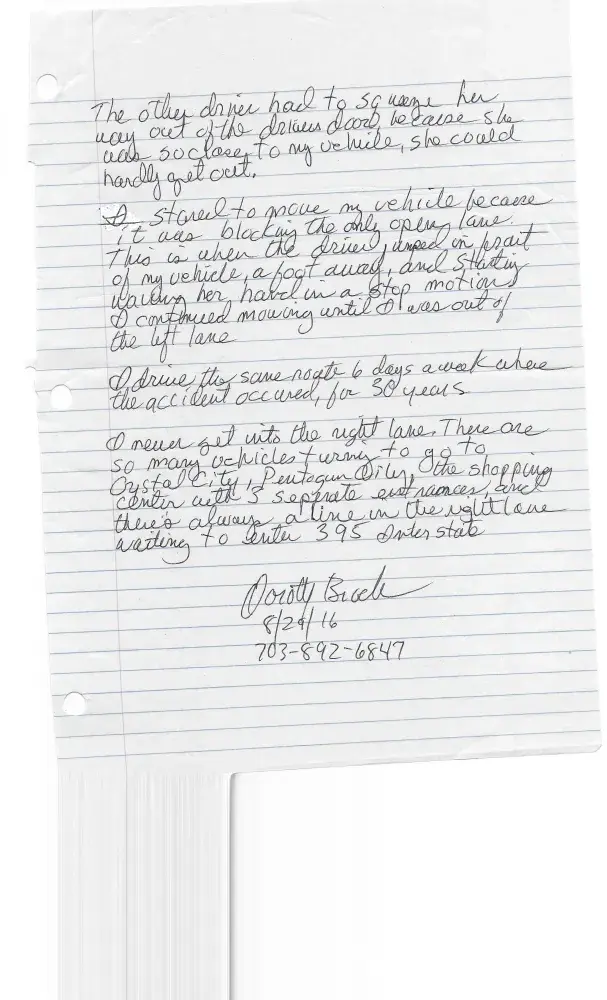 The other driver had to squeeze her
way out of the drivers door because she
was so close to my vehicle, she could
hardly get out.
I stared to move my vehicle because
it was blocking the only open lane.
This is when the driver jumped in front
of my vehicle, a foot away, and starting
waiving her hand in a stop motion
I continued moving until I was out of
the left lane
I drive the same route 6 days a week where
the accident occured, for 30 years
I never get into the right lane. There are
so many vehicles turning to go to
Crystal City, Pentagon City, the shopping
center with 3 seprate entrances, and
there's always a line in the right lane
waiting to enter 395 Interstate
Dorothy
8/29/16
703-892-6847